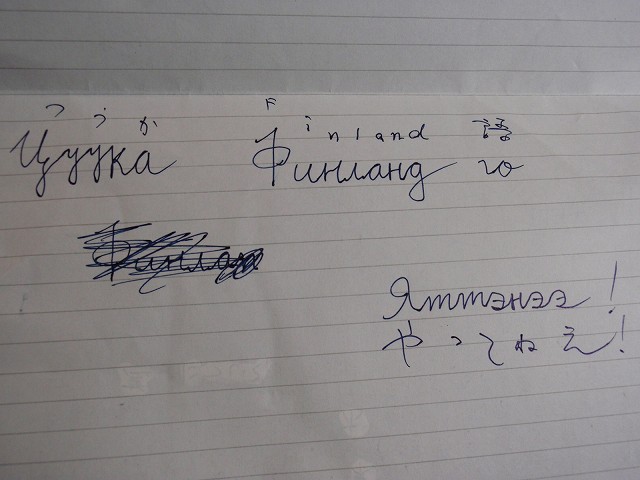 つうか Finland 語
Цуука Финланд го
Финлан
Яттэнээ!
やってねえ!